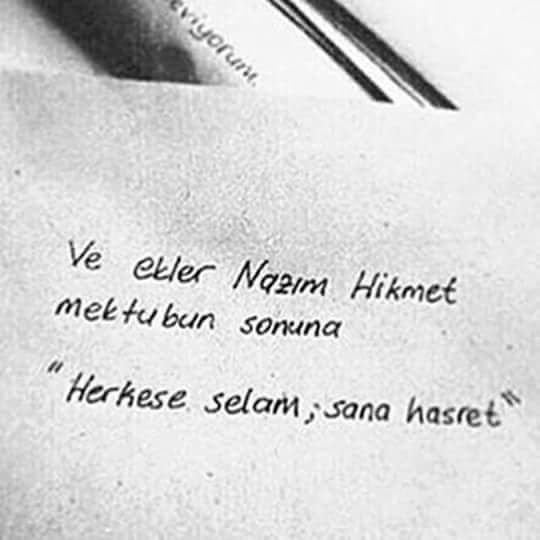 eviyorum.
Ve ekler Nazım Hikmet
mektubun sonuna
"Herkese selam, sana hasret"